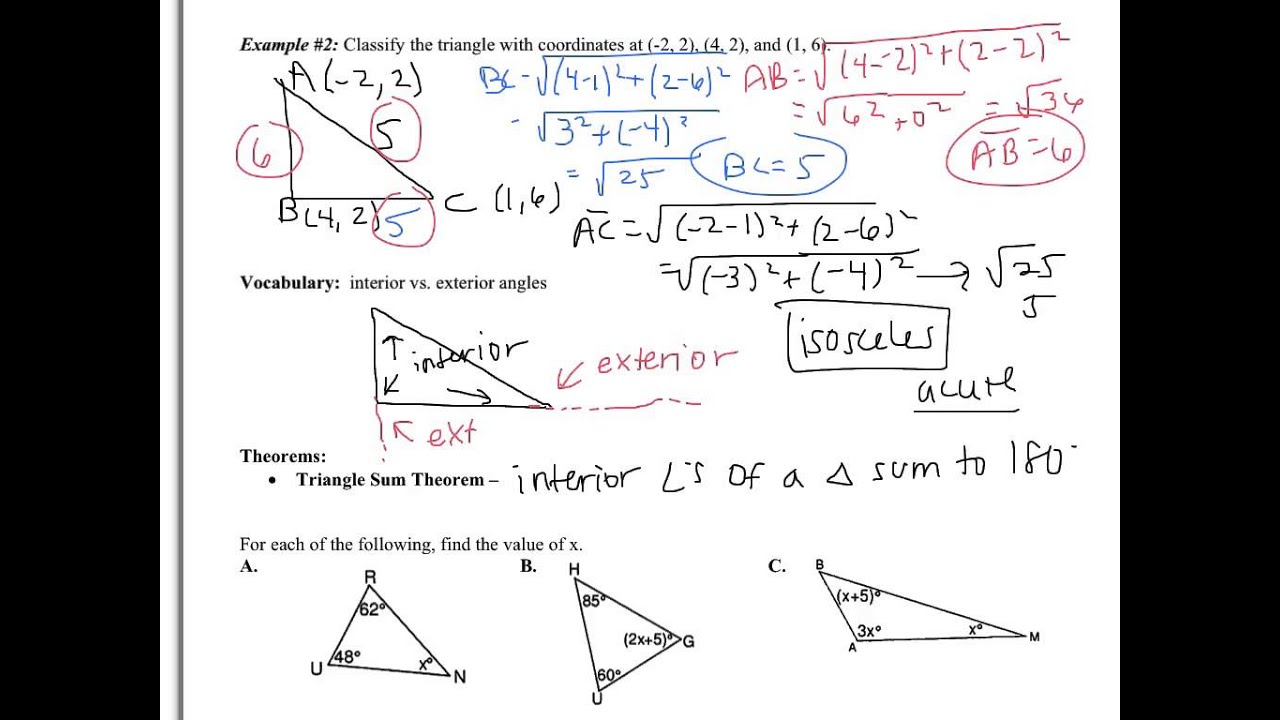 Example #2: Classify the triangle with coordinates at (-2, 2), (4, 2), and (1, 6).
A (-2, 2)
5
6
B(4, 2)
5
C (1,6)
BC = √(4-1)² + (2-6)²
= √3² + (-4)²
= √25
BC = 5
AB = √(4--2)² + (2-2)²
= √6² + 0² = √36
AB = 6
AC = √(-2-1)² + (2-6)²
= √(-3)² + (-4)² → √25
5
isosceles
acute
Vocabulary: interior vs. exterior angles
interior
exterior
ext
Theorems:
• Triangle Sum Theorem – interior ∠'s of a △ sum to 180°
For each of the following, find the value of x.
A.
R
62°
U
48°
x°
N
B.
H
85°
(2x+5)°
G
60°
U
C.
B
(x+5)°
3x°
x°
M
A